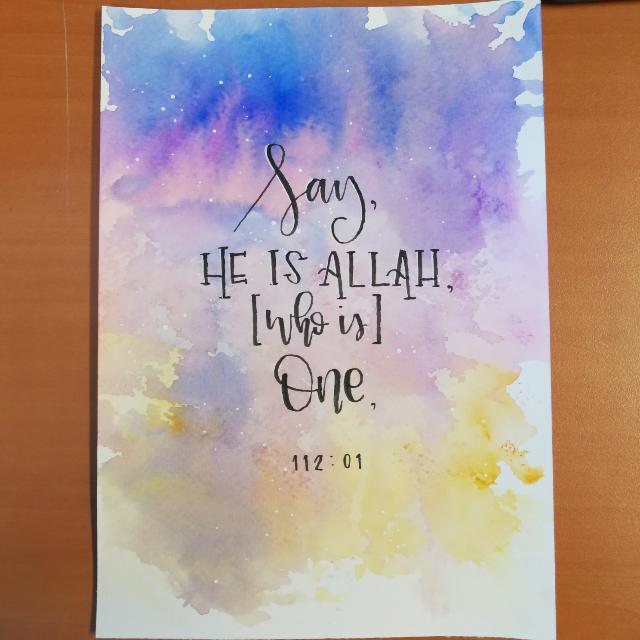 Say,
HE IS ALLAH,
[who is]
One,
112:01